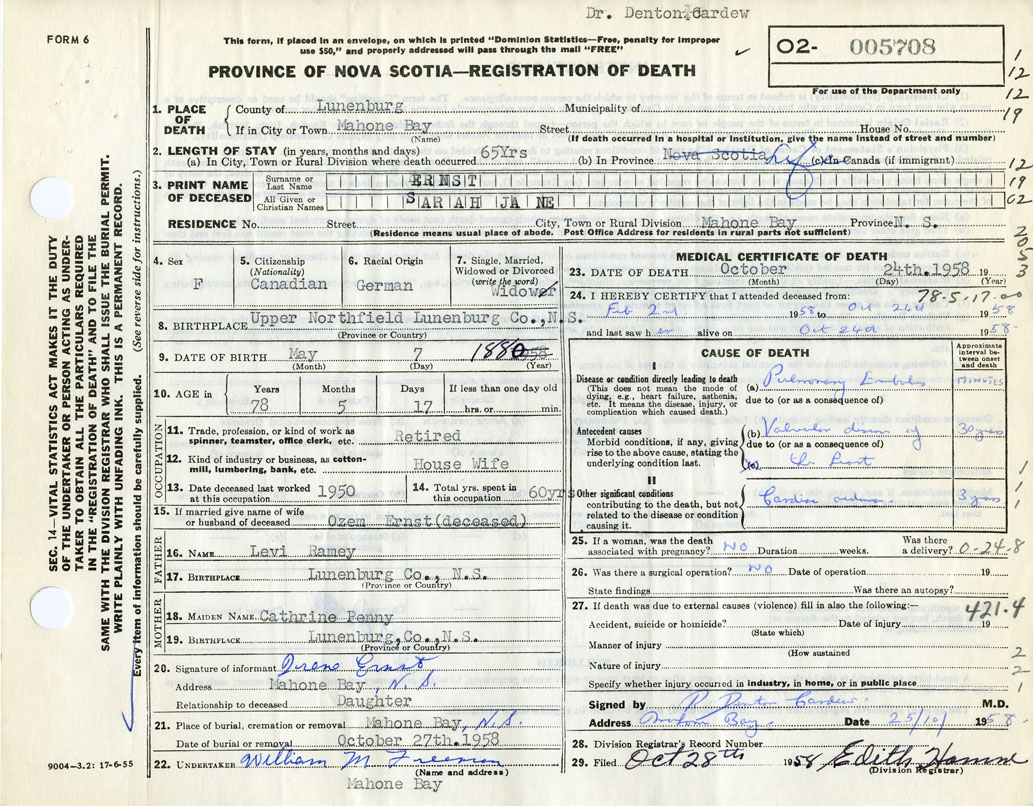 Dr. Denton Cardew
FORM 6
This form, if placed in an envelope, on which is printed "Dominion Statistics—Free, penalty for improper
use $50," and properly addressed will pass through the mail "FREE"
O2- 005708
For use of the Department only
PROVINCE OF NOVA SCOTIA—REGISTRATION OF DEATH
1
12
12
19
1. PLACE OF DEATH
County of Lunenburg Municipality of
If in City or Town Mahone Bay Street House No.
(Name) (If death occurred in a hospital or institution, give the name instead of street and number)
2. LENGTH OF STAY (in years, months and days)
(a) In City, Town or Rural Division where death occurred 65Yrs (b) In Province Nova Scotia Life (c) In Canada (if immigrant)
12
19
62
3. PRINT NAME OF DECEASED
Surname or Last Name ERNST
All Given or Christian Names SARAH JANE
RESIDENCE No. Street City, Town or Rural Division Mahone Bay Province N. S.
(Residence means usual place of abode. Post Office Address for residents in rural parts not sufficient)
2
0
5
3
4. Sex F
5. Citizenship (Nationality) Canadian
6. Racial Origin German
7. Single, Married, Widowed or Divorced (write the word) Widower
8. BIRTHPLACE Upper Northfield Lunenburg Co.,N.S.
(Province or Country)
9. DATE OF BIRTH May 7 1880
(Month) (Day) (Year)
10. AGE in Years 78 Months 5 Days 17 If less than one day old hrs. or min.
OCCUPATION
11. Trade, profession, or kind of work as spinner, teamster, office clerk, etc. Retired
12. Kind of industry or business, as cotton-mill, lumbering, bank, etc. House Wife
13. Date deceased last worked at this occupation 1950
14. Total yrs. spent in this occupation 60yrs
15. If married give name of wife or husband of deceased Ozem Ernst(deceased)
FATHER
16. NAME Levi Ramey
17. BIRTHPLACE Lunenburg Co., N.S.
(Province or Country)
MOTHER
18. MAIDEN NAME Cathrine Penny
19. BIRTHPLACE Lunenburg,Co.,N.S.
(Province or Country)
20. Signature of informant Irene Ernst
Address Mahone Bay, N.S.
Relationship to deceased Daughter
21. Place of burial, cremation or removal Mahone Bay, N.S.
Date of burial or removal October 27th.1958
22. UNDERTAKER William M Freeman
(Name and address)
Mahone Bay
MEDICAL CERTIFICATE OF DEATH
23. DATE OF DEATH October 24th.1958 19
(Month) (Day) (Year)
78-5-17-00
24. I HEREBY CERTIFY that I attended deceased from:
Feb 2nd 1958 to Oct 24th 1958
and last saw her alive on Oct 24th 1958
CAUSE OF DEATH
Approximate interval between onset and death
I
Disease or condition directly leading to death
(This does not mean the mode of dying, e.g., heart failure, asthenia, etc. It means the disease, injury, or complication which caused death.)
(a) Pulmonary Embolus minutes
due to (or as a consequence of)
Antecedent causes
Morbid conditions, if any, giving rise to the above cause, stating the underlying condition last.
(b) Valvular disease of 30 years
due to (or as a consequence of)
(c) the heart
II
Other significant conditions
contributing to the death, but not related to the disease or condition causing it.
Cardiac 3 years
1
1
1
25. If a woman, was the death associated with pregnancy? NO Duration weeks. Was there a delivery? 0-24-8
26. Was there a surgical operation? NO Date of operation 19
State findings Was there an autopsy?
27. If death was due to external causes (violence) fill in also the following:— 421.4
Accident, suicide or homicide? Date of injury 19
(State which)
Manner of injury
(How sustained
Nature of injury
Specify whether injury occurred in industry, in home, or in public place
2
2
1
Signed by R Denton Cardew M.D.
Address Mahone Bay. Date 25/10/ 1958.
28. Division Registrar's Record Number
29. Filed Oct 28th 1958 Edith
(Division Registrar)
SEC. 14—VITAL STATISTICS ACT MAKES IT THE DUTY
OF THE UNDERTAKER OR PERSON ACTING AS UNDER-
TAKER TO OBTAIN ALL THE PARTICULARS REQUIRED
IN THE "REGISTRATION OF DEATH" AND TO FILE THE
SAME WITH THE DIVISION REGISTRAR WHO SHALL ISSUE THE BURIAL PERMIT.
WRITE PLAINLY WITH UNFADING INK. THIS IS A PERMANENT RECORD.
Every item of information should be carefully supplied. (See reverse side for instructions.)
9004—3.2: 17-6-55